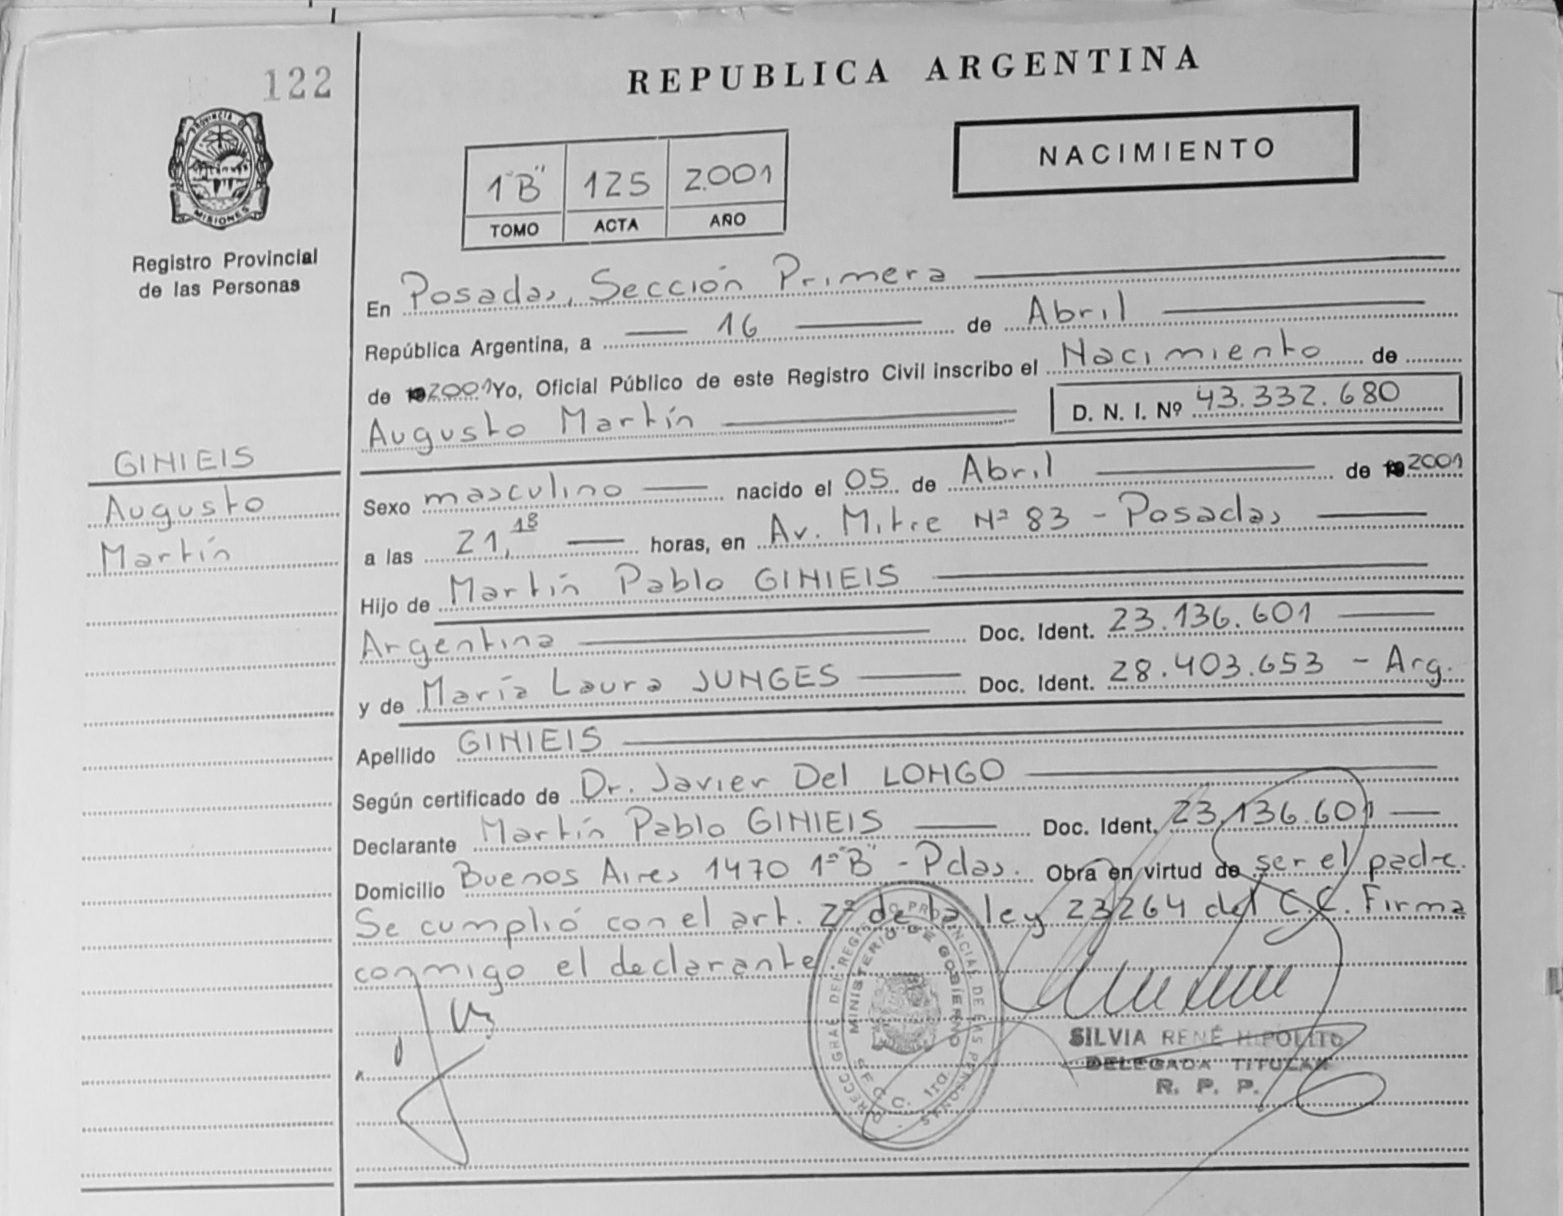 122
REPUBLICA ARGENTINA
NACIMIENTO
1"B" 125 2.001
TOMO ACTA AÑO
PROVINCIA D MISIONES
Registro Provincial
de las Personas
En Posadas, Sección Primera
República Argentina, a 16 de Abril
de 19 2001 Yo, Oficial Público de este Registro Civil inscribo el Nacimiento de
Augusto Martín D. N. I. Nº 43.332.680
GINIEIS
Augusto
Martín
Sexo masculino nacido el 05 de Abril de 19 2001
a las 21,18 horas, en Av. Mitre Nº 83 - Posadas
Hijo de Martín Pablo GINIEIS
Argentina Doc. Ident. 23.136.601
y de María Laura JUNGES Doc. Ident. 28.403.653 - Arg.
Apellido GINIEIS
Según certificado de Dr. Javier Del LONGO
Declarante Martín Pablo GINIEIS Doc. Ident. 23.136.601
Domicilio Buenos Aires 1470 1º"B" - Pdas. Obra en virtud de ser el padre.
Se cumplió con el art. 2º de la ley 23264 del C.C. Firma
conmigo el declarante
MINISTERIO DE GOBIERNO
SECC. 1ra.
SILVIA RENÉ HIPOLITO
DELEGADA TITULAR
R. P. P.